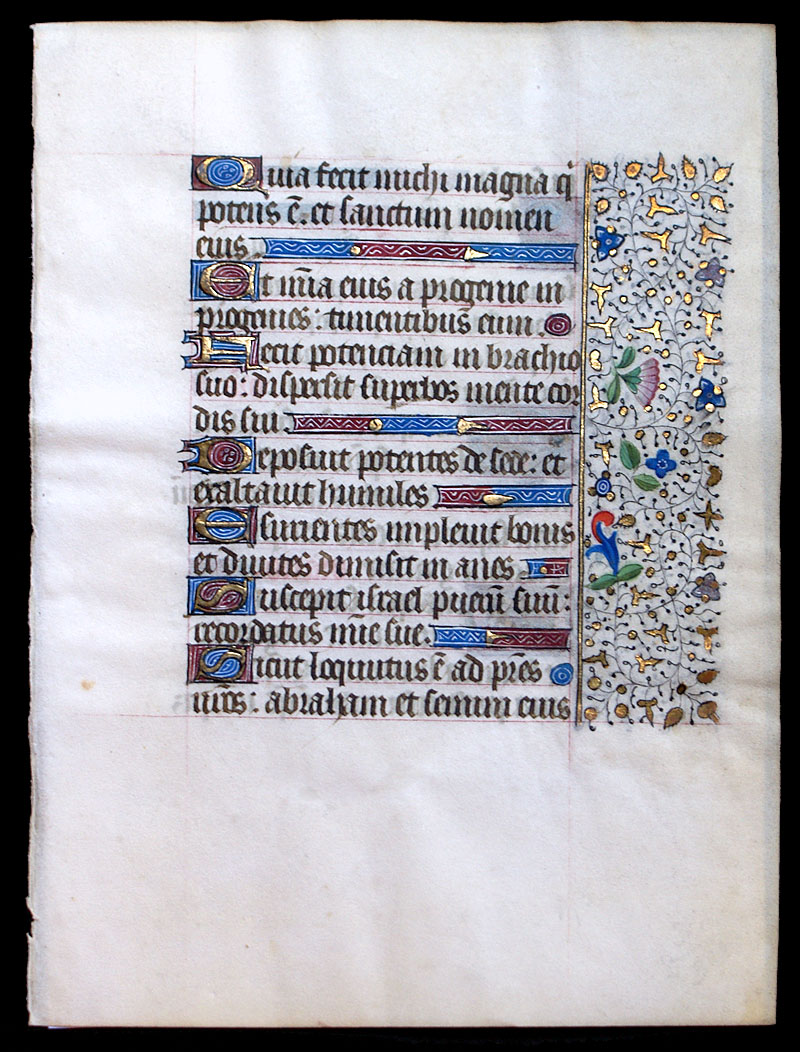 Quia fecit michi magna q̇
potens ē. et sanctum nomen
eius.
Et mīa eius a progenie in
progenies: timentibus eum
Fecit potenciam in brachio
suo: dispersit superbos mente cor
dis sui.
Deposuit potentes de sede: et
exaltavit humiles
Esurientes implevit bonis
et divites dimisit inanes.
Suscepit israel puerū suū:
recordatus mīe sue.
Sicut loquutus ē ad pr̄es
nr̄os: abraham et semini eius